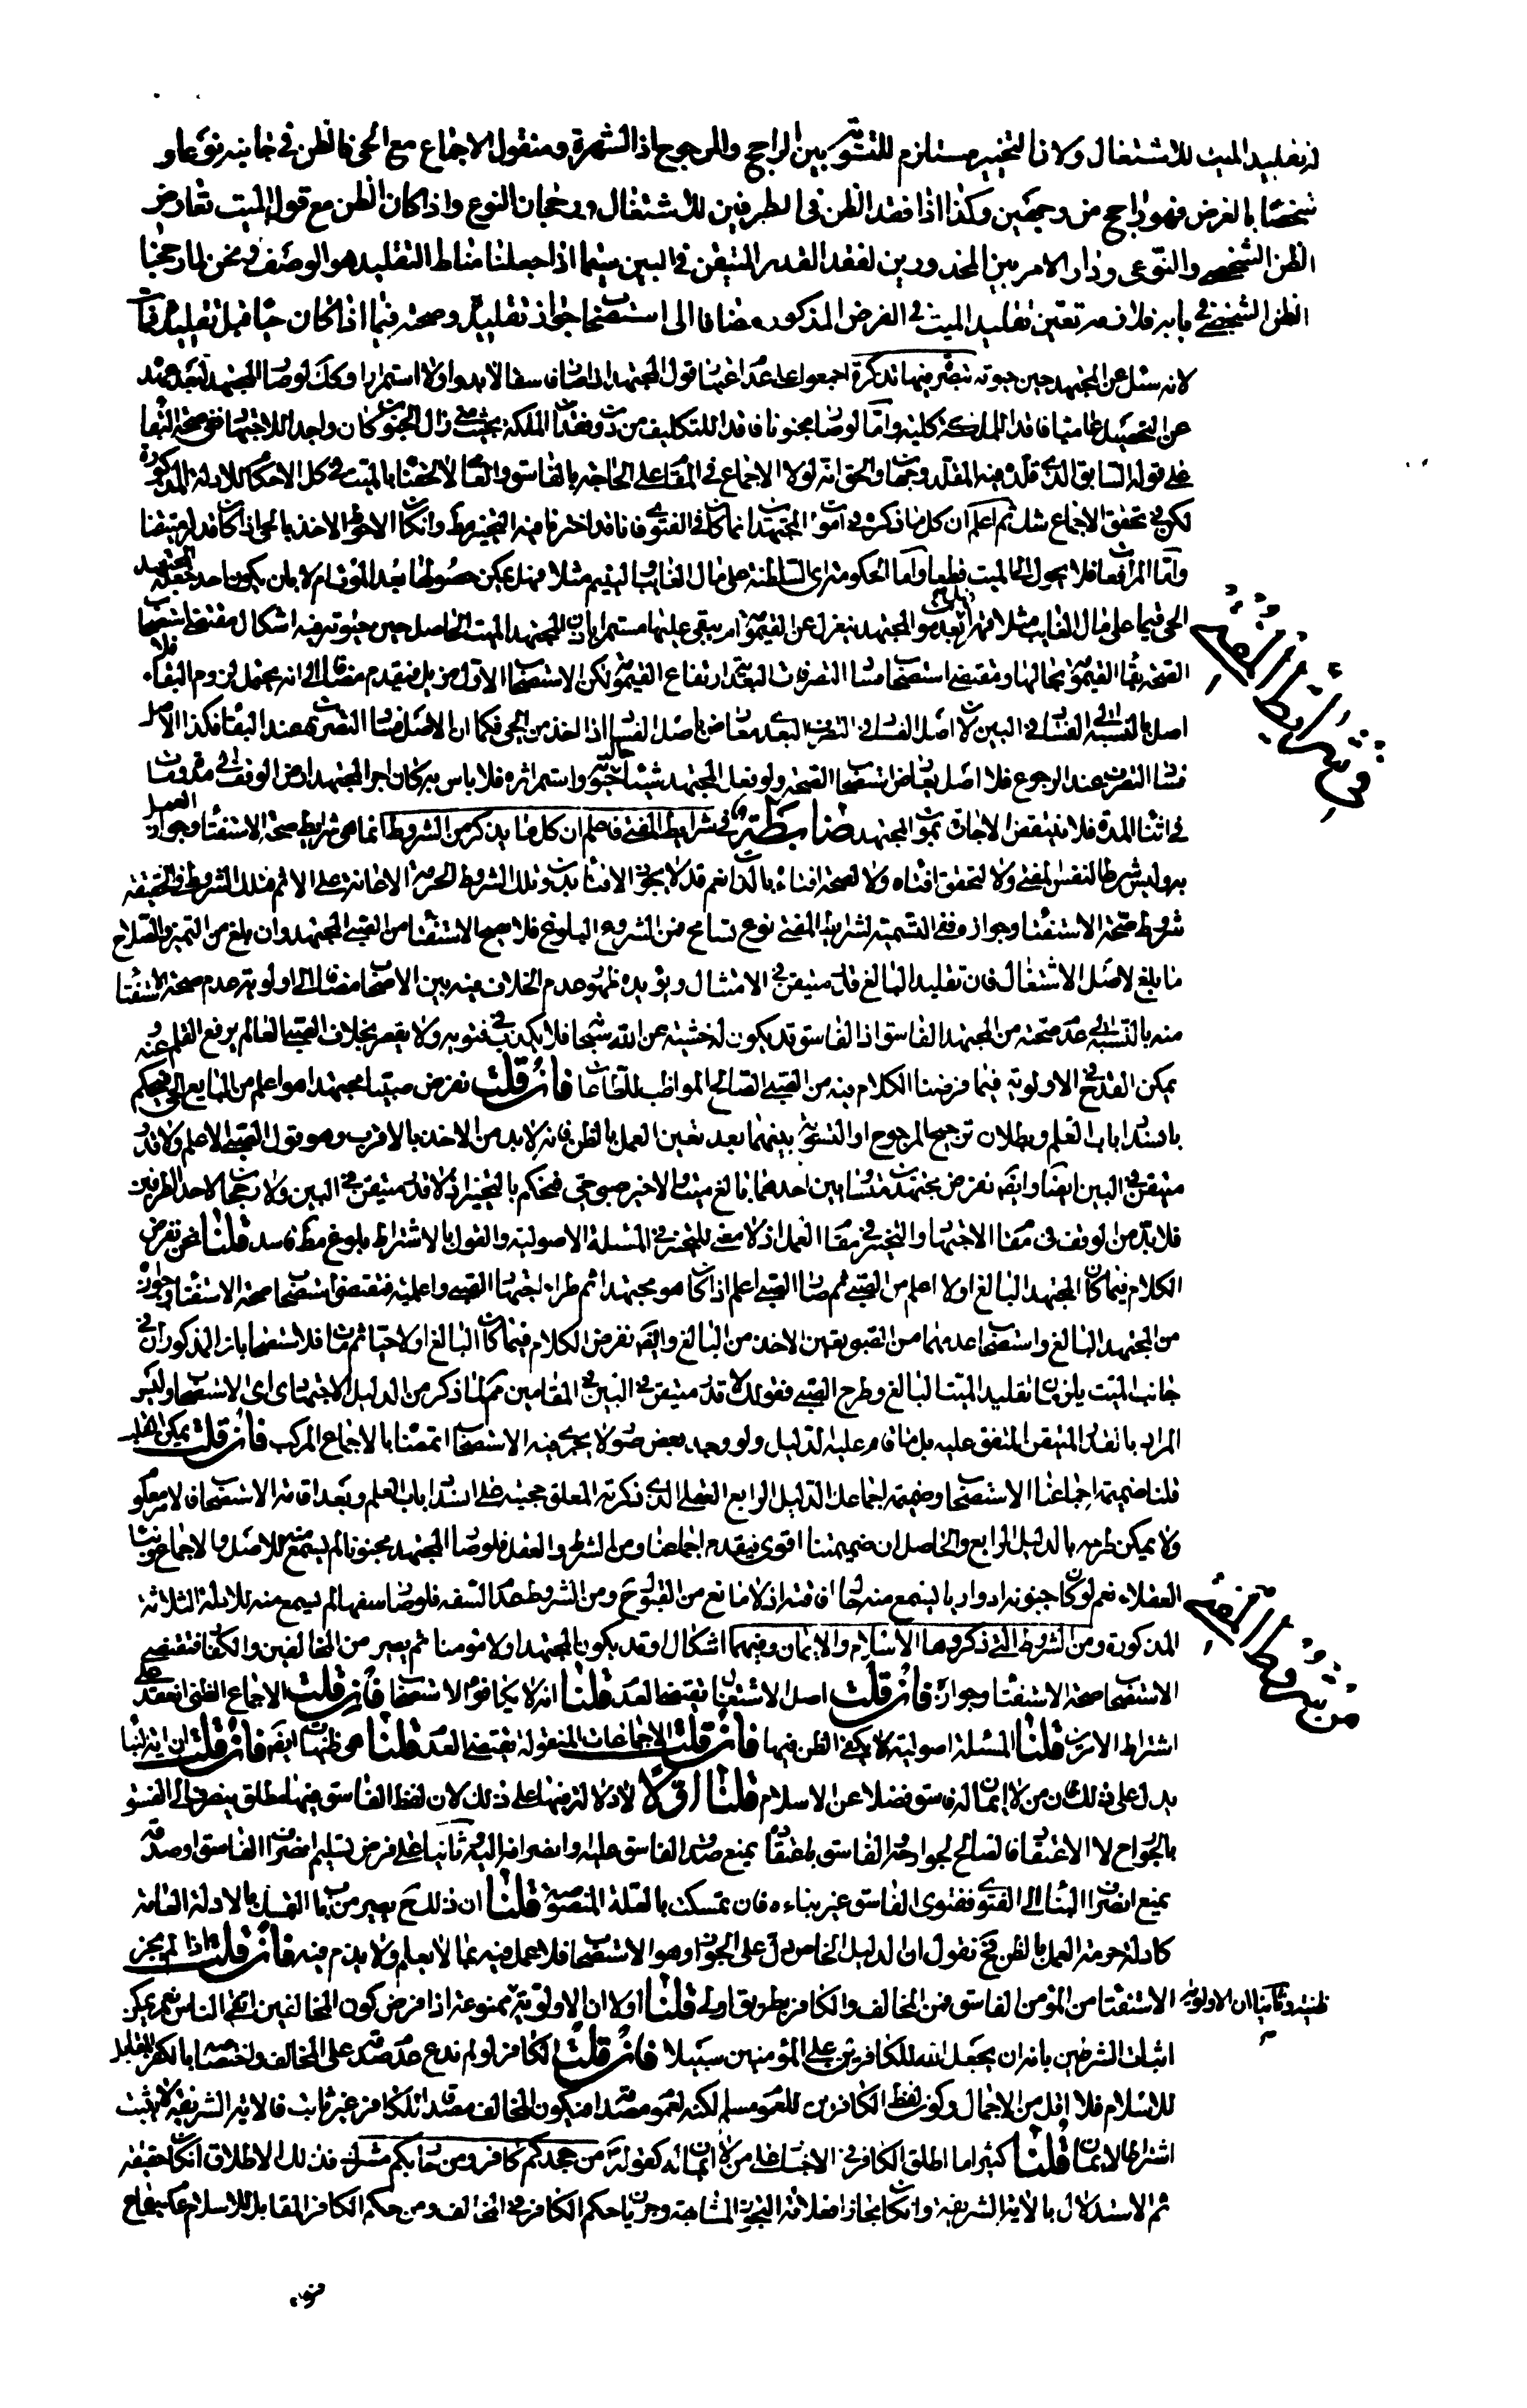 لم تقليد الميت للاشتغال ولان التخيير مستلزم للتسوية بين الراجح والمرجوح اذ الشهرة ومنقول الاجماع مع الحى فالظن فى جانبه نوعا و
شخصا بالفرض فهو راجح من وجهين وكذا اذا فقد الظن فى الطرفين للاشتغال ورجحان النوع واذا كان الظن مع قول الميت تعارض
الظن الشخصى والنوعى ودار الامر بين المحذورين لفقد القدر المتيقن فى البين سيما اذا جعلنا مناط التقليد هو الوصف ونحن لما رجحنا
الظن الشخصى فى بابه فلازمه تعين تقليد الميت فى الفرض المذكور مضافا الى استصحاب جواز تقليده وصحته فيما اذا كان حيا قبل تقليده فمات
لانه سئل عن المجتهد حين حيوته تبصر فيها تذكرة اجمعوا على عدم اعتبار قول المجتهد اذا صار فاسقا لا بدوا ولا استمرارا وكك لو صار المجتهد بعد
عن التحصيل عاميا فاقد الملكة كلية واما لو صار مجنونا فاقدا للتكليف من دون فقدان الملكة بحيث متى زال الجنون كان واجدا للاجتهاد ففى صحة البقاء
على قوله السابق الذى قلده فيه المقلد وجهان والحق انه لولا الاجماع فى المقام على الحاقه بالفاسق والعامى لالحقناه بالميت فى كل الاحكام للادلة المذكورة
لكن فى تحقق الاجماع شك ثم اعلم ان كل ما ذكره فى اموات المجتهدين انما كان فى الفتوى فانا قد اخترنا فيه التخيير مط وان كان الاحوط الاخذ بالحى اذ كان قدرا متيقنا
واما المرافعات فلا يجوز الى الميت قطعا واما الحكومة اى السلطنة على مال الغايب واليتيم مثلا فهل يمكن حصولها بعد الموت ام لا بان يكون احد جعله المجتهد
الحى قيما على مال الغايب مثلا فهل بعد موت المجتهد ينعزل عن القيمومة ام يبقى عليها مستمرا باذن المجتهد الميت الحاصل حين حيوته فيه اشكال مقتضى استصحاب
الصحة بقاء القيمومة بحالها ومقتضى استصحاب فساد التصرفات البعد ارتفاع القيمومة لكن الاستصحاب الاول مزيل فيقدم مضافا الى انه يحتمل لزوم البقاء فلا
اصل بالنسبة الى الفساد فى البين لان اصل الفساد فى التصرف البعد معارض باصل الفساد اذا اخذ من الحى فكما ان الاصل فساد التصرف عند البقاء فكذا الاصل
فساد التصرف عند الرجوع فلا اصل يعارض استصحاب الصحة ولو فعل المجتهد شيئا حال حيوته واستمر اثره فلا باس به كان اجر المجتهد ارض الوقف فى مدة فمات
فى اثناء المدة فلا ينتقض الاجارة بموت المجتهد ضابطة فى شرايط المفتى فاعلم ان كل ما يذكر من الشروط انما هى شرايط صحة الاستفتاء وجواز العمل
به وليس شرطا لنفس المفتى ولا لتحقق افتاه ولا لصحة افتاه بالذات نعم قد لا يجوز الافتاء بدون تلك الشروط لحرمة الاعانة على الاثم فتلك الشروط فى الحقيقة
شروط صحة الاستفتاء وجوازه ففى التسمية لشرايط المفتى نوع تسامح فمن الشروط البلوغ فلا يصح الاستفتاء من الصبى المجتهد وان بلغ من التميز والصلاح
ما بلغ لاصل الاشتغال فان تقليد البالغ قدر متيقن فى الامتثال ويؤيده ظهور عدم الخلاف فيه بين الاصحاب مضافا الى اولوية عدم صحة الاستفتاء
منه بالنسبة الى عدم صحته من المجتهد الفاسق اذ الفاسق قد يكون له خشية عن الله سبحانه فلا يكذب فى فتويه ولا يقصر بخلاف الصبى العالم برفع القلم عنه
يمكن القدح فى الاولوية فيما فرضنا الكلام فيه من الصبى الصالح المواظب للطاعات فان قلت نفرض صبيا مجتهدا هو اعلم من البالغ الحى فيحكم
بانسداد باب العلم وبطلان ترجيح المرجوح او التسوية بينهما بعد تعين العمل بالظن فانه لابد من الاخذ بالاقرب وهو قول الصبى الاعلم ولا قدر
متيقن فى البين ايضا وايضا نفرض مجتهدين متساويين احدهما بالغ ميت والاخر صبى حى فنحكم بالتخيير اذ لا قدر متيقن فى البين ولا رجحان لاحد الطرفين
فلابد من توقف فى مقام الاجتهاد والتخيير فى مقام العمل اذ لا معنى للتخيير فى المسئلة الاصولية والقول بالاشتراط بلوغ مط فاسد قلنا نحن نفرض
الكلام فيما كان المجتهد البالغ اولا اعلم من الصبى ثم صار الصبى اعلم اذ كان هو مجتهدا ثم طرء اجتهاد الصبى واعلميته فمقتضى استصحاب صحة الاستفتاء وجوازه
من المجتهد البالغ واستصحاب عدمهما من الصبى تعين الاخذ من البالغ وايضا نفرض الكلام فيما كان البالغ اولا حيا ثم مات فالاستصحابان المذكوران فى
جانب الميت يلزمان تقليد الميت البالغ وطرح الصبى فقولك لا قدر متيقن فى البين فى المقامين مم لما ذكر من الدليل الاجتهادى اى الاستصحاب وليس
المراد بالقدر المتيقن المتفق عليه بل ما قام عليه الدليل ولو وجد بعض صور لا يجرى فيه الاستصحاب اتممنا بالاجماع المركب فان قلت يمكن القلب
قلنا ضميمة اجماعنا الاستصحاب وضميمة اجماعك الدليل الرابع العقلى الذى ذكرته المعلق حجيته على انسداد باب العلم وبعد اقامة الاستصحاب فلا معكوس
ولا يمكن طرحه بالدليل الرابع والحاصل ان ضميمتنا اقوى فيقدم اجماعنا ومن الشروط العقل فلو صار المجتهد مجنونا لم يسمع منه للاصل والاجماع وبناء
العقلاء نعم لو كان جنونه ادواريا يسمع منه حال افاقته اذ لا مانع من القبول ح ومن الشروط عدم السفه فلو صار سفيها لم يسمع منه للادلة الثلاثة
المذكورة ومن الشروط التى ذكروها الاسلام والايمان وفيهما اشكال اذ قد يكون المجتهد اولا مؤمنا ثم يصير من المخالفين والكفار فمقتضى
الاستصحاب صحة الاستفتاء وجوازه فان قلت اصل الاشتغال يقتضى العدم قلنا انه لا يكافؤ الاستصحاب فان قلت الاجماع الظنى انعقد على
اشتراط الامرين قلنا المسئلة اصولية لا يكفى الظن فيها فان قلت الاجماعات المنقولة يقتضى العدم قلنا هى ظنيات ايضا فان قلت ان اية النبأ
يدل على ذلك فان من لا ايمان له فاسق فضلا عن الاسلام قلنا اولا لا دلالة فيها على ذلك لان لفظ الفاسق فيها مطلق ينصرف الى الفسق
بالجوارح لا الاعتقاد فالصالح لجوارحه الفاسق باعتقاده يمنع صدق الفاسق عليه وانصرافه اليه وثانيا على فرض تسليم انصراف الفاسق او صدقه
يمنع انصراف النبأ الى الفتوى ففتوى الفاسق غير بناءه فان تمسكت بالعلة المنصوصة قلنا ان ذلك ح يصير من باب التمسك بالادلة العامة
كادلة حرمة العمل بالظن فح نقول ان الدليل الخاص دل على الجواز وهو الاستصحاب فلا عمل فيه بما لا يعلم ولا يذم فيه فان قلت اذا لم يجز
الاستفتاء من المؤمن الفاسق فمن المخالف والكافر بطريق اولى قلنا اولا ان الاولوية ممنوعة اذا فرض كون المخالفين اتقى الناس نعم يمكن
ظنية وثانيا ان الاولوية
اثبات الشرطين بانه لن يجعل الله للكافرين على المؤمنين سبيلا فان قلت الكافر لو لم ندع عدم صدقه على المخالف واختصاصه بالكفر المقابل
للاسلام فلا اقل من الاجمال وكون لفظ الكافرين للعموم مسلم لكنه لعموم مصداقه وكون المخالف مصداقا للكافر غير ثابت فالاية الشريفة لا يثبت
اشتراط الايمان قلنا كثيرا ما اطلق الكافر فى الاخبار على من لا ايمان له كقوله من جحدكم كافر ومن حاربكم مشرك فذلك الاطلاق ان كان حقيقة
تم الاستدلال بالاية الشريفة وان كان مجازا فعلاقة التجوز المشابهة وجريان حكم الكافر فى المخالف ومن حكم الكافر المقابل للاسلام عدم سماع
فى شرايط المفتى
من شروط المفتى
فتواه